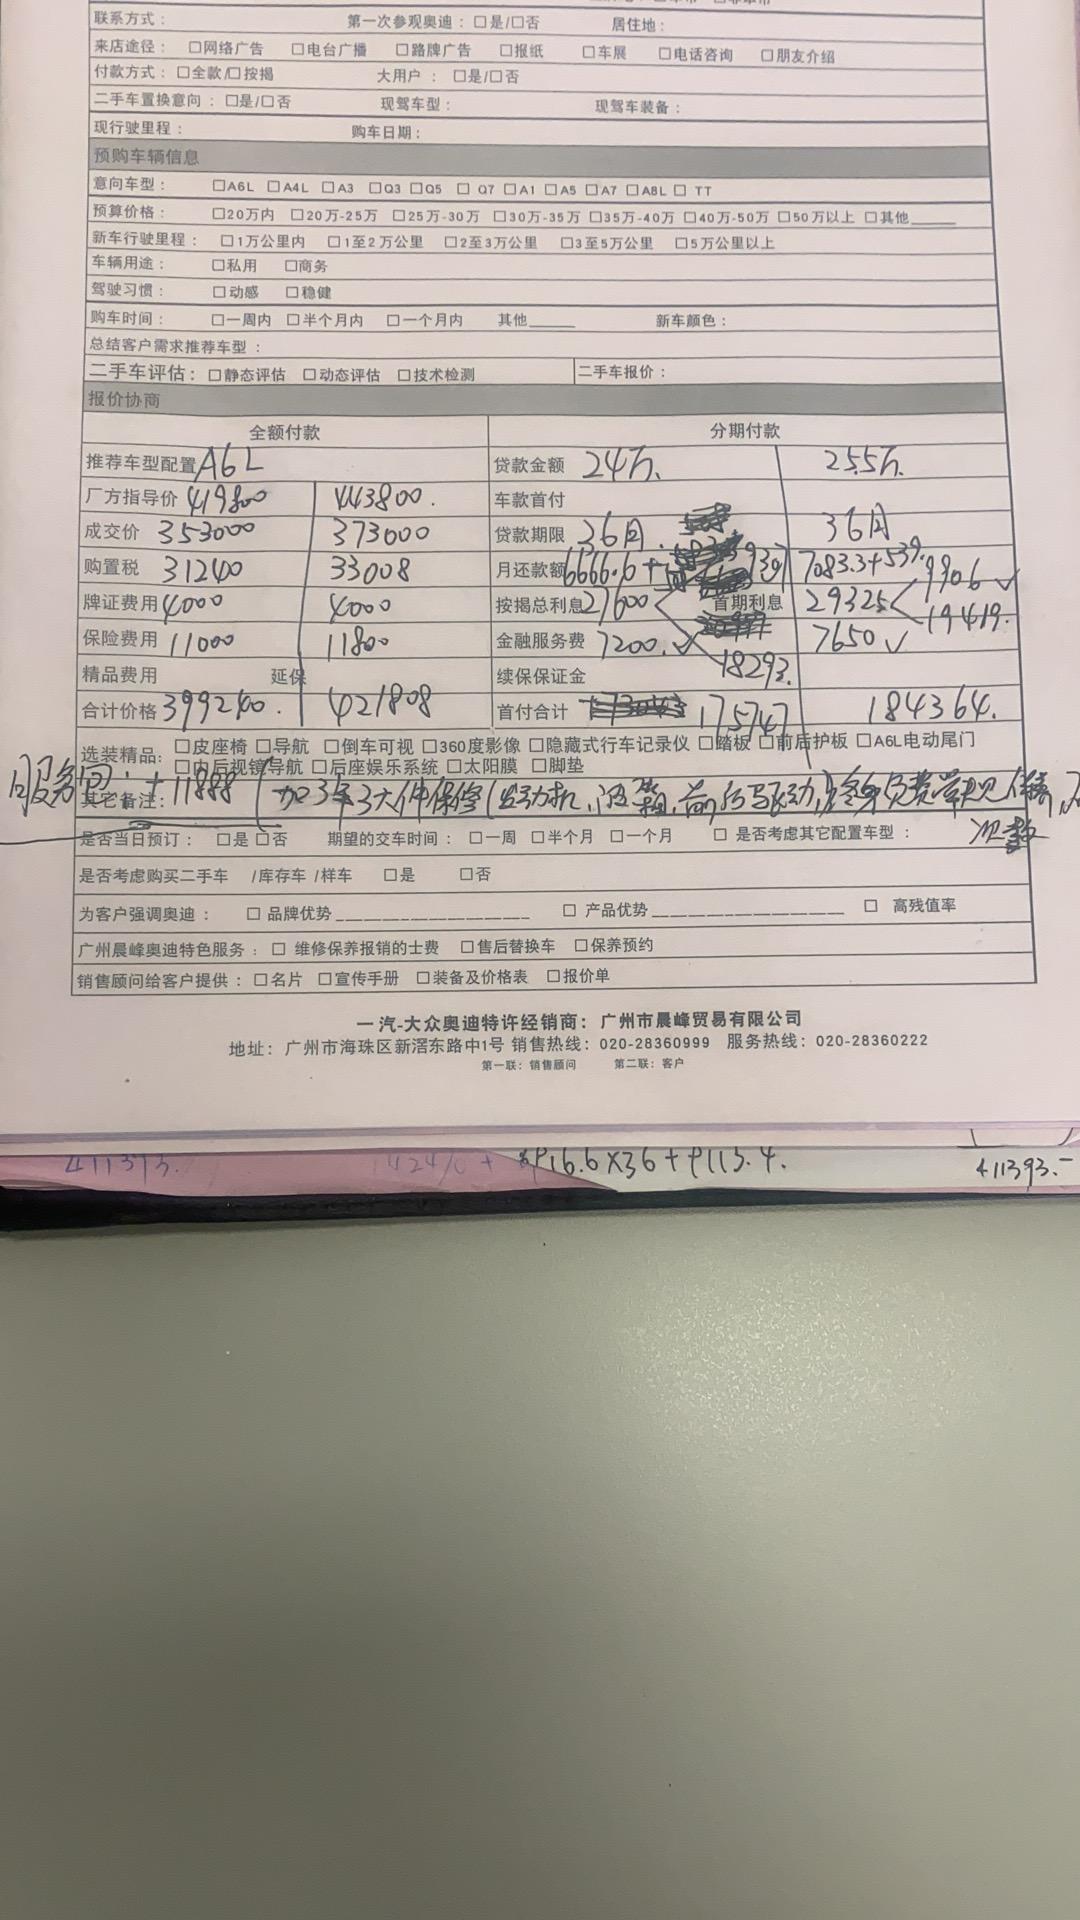 联系方式： 第一次参观奥迪：□是/□否 居住地：
来店途径： □网络广告 □电台广播 □路牌广告 □报纸 □车展 □电话咨询 □朋友介绍
付款方式：□全款/□按揭 大用户： □是/□否
二手车置换意向：□是/□否 现驾车型： 现驾车装备：
现行驶里程： 购车日期：
预购车辆信息
意向车型： □A6L □A4L □A3 □Q3 □Q5 □ Q7 □A1 □A5 □A7 □A8L □ TT
预算价格： □20万内 □20万-25万 □25万-30万 □30万-35万 □35万-40万 □40万-50万 □50万以上 □其他_____
新车行驶里程： □1万公里内 □1至2万公里 □2至3万公里 □3至5万公里 □5万公里以上
车辆用途： □私用 □商务
驾驶习惯： □动感 □稳健
购车时间： □一周内 □半个月内 □一个月内 其他_____ 新车颜色：
总结客户需求推荐车型：
二手车评估：□静态评估 □动态评估 □技术检测 二手车报价：
报价协商
全额付款 分期付款
推荐车型配置 A6L 贷款金额 24万. 25.5万.
厂方指导价 419800 443800. 车款首付
成交价 353000 373000 贷款期限 36月. 36月
购置税 31240 33008 月还款额 6666.6+ 7083.3+539. 9906✓
牌证费用 4000 4000 按揭总利息 27600 首期利息 29325 19419.
保险费用 11000 11800 金融服务费 7200.✓ 7650✓
精品费用 延保 续保保证金 18293.
合计价格 399240. 421808 首付合计 175747 184364.
选装精品: □皮座椅 □导航 □倒车可视 □360度影像 □隐藏式行车记录仪 □踏板 □前后护板 □A6L电动尾门
□内后视镜导航 □后座娱乐系统 □太阳膜 □脚垫
其它备注: +11888 (加3年3大件保修(发动机,波箱,前后驱动,)终身免费常规保养,
次数
是否当日预订： □是 □否 期望的交车时间： □一周 □半个月 □一个月 □ 是否考虑其它配置车型：
是否考虑购买二手车 /库存车 /样车 □是 □否
为客户强调奥迪： □ 品牌优势____________________ □ 产品优势____________________ □ 高残值率
广州晨峰奥迪特色服务： □ 维修保养报销的士费 □售后替换车 □保养预约
销售顾问给客户提供：□名片 □宣传手册 □装备及价格表 □报价单
一汽-大众奥迪特许经销商：广州市晨峰贸易有限公司
地址：广州市海珠区新滘东路中1号 销售热线：020-28360999 服务热线：020-28360222
第一联：销售顾问 第二联：客户
411393. 411393.-